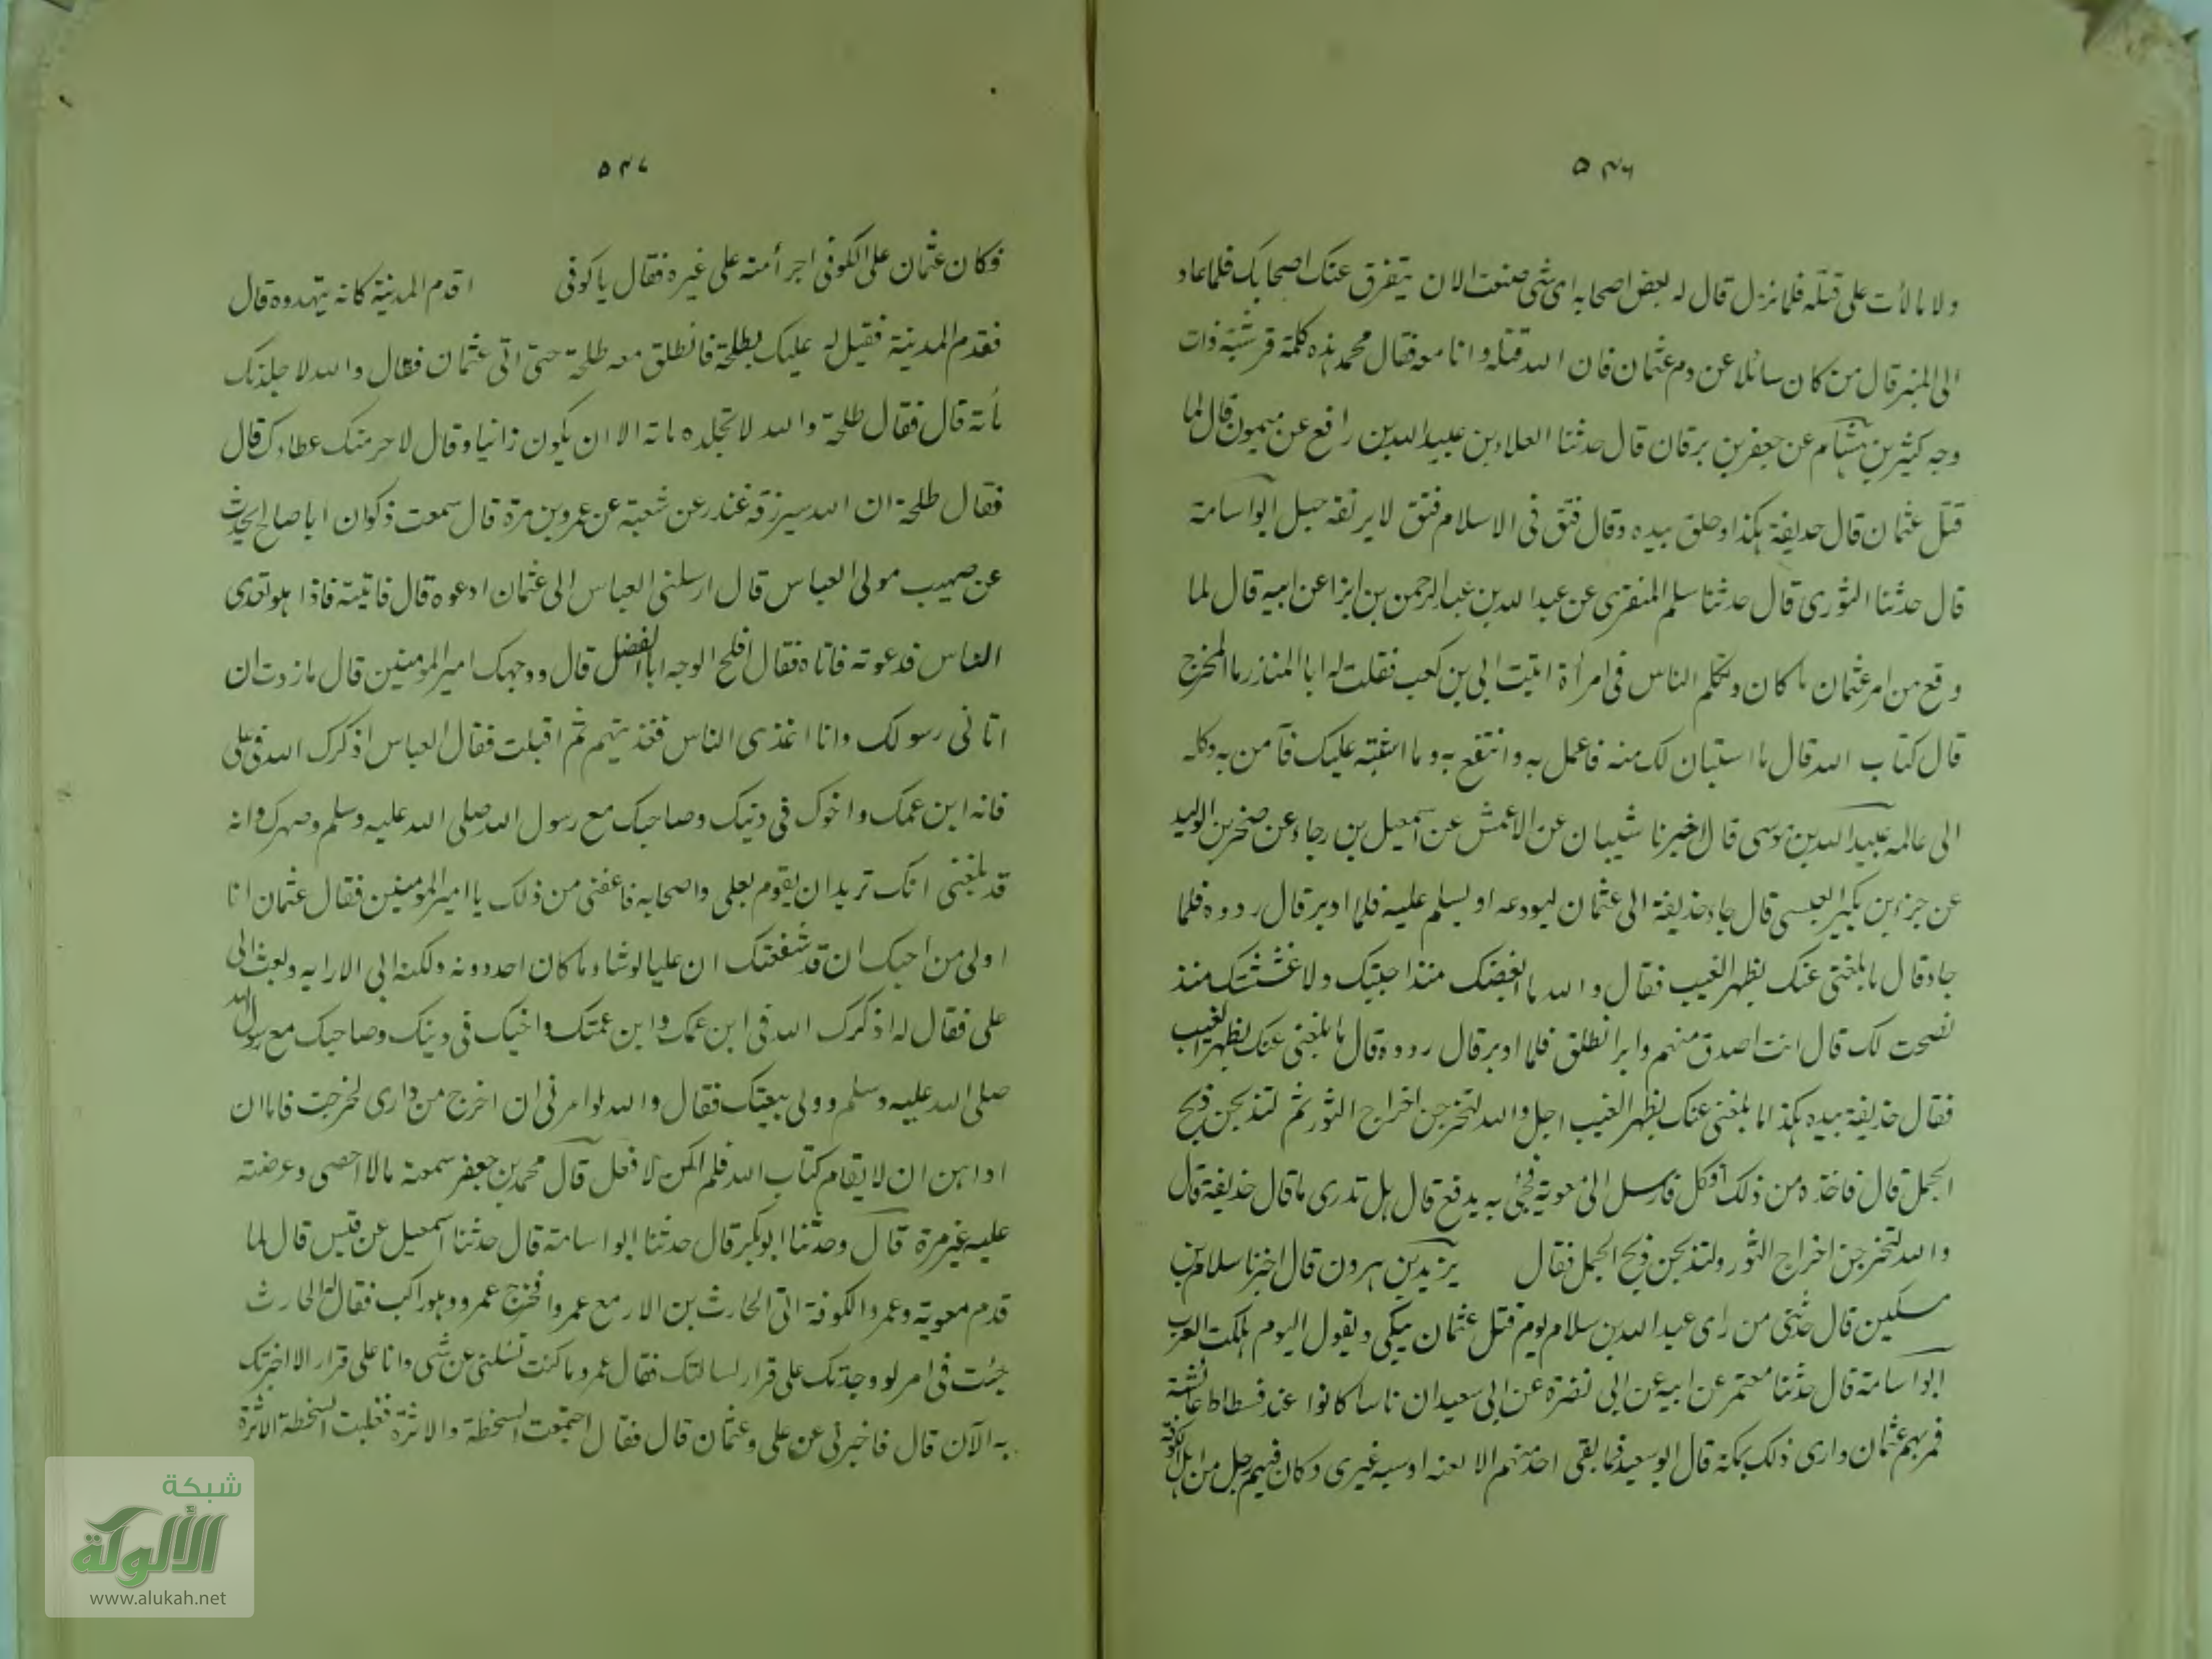 ٥٤٦
ولا مالأت على قتله فلما نزل قال له بعض اصحابه اى شئ صنعت الان يتفرق عنك اصحابك فلما عاد
الى المنبر قال من كان سائلا عن دم عثمان فان الله قتله وانا معه فقال محمد هذه كلمة قرشية ذات
وجه كثير بن هشام عن جعفر بن برقان قال حدثنا العلاء بن عبيد الله بن رافع عن ميمون قال لما
قتل عثمان قال حذيفة هكذا وحلق بيده وقال فتق فى الاسلام فتق لا يرتقه جبل ابو اسامة
قال حدثنا الثورى قال حدثنا سلم المنقرى عن عبد الله بن عبد الرحمن بن ابزا عن ابيه قال لما
وقع من امر عثمان ما كان وتكلم الناس فى امرأة اتيت ابى بن كعب فقلت له ابا المنذر ما المخرج
قال كتاب الله قال ما استبان لك منه فاعمل به وانتفع به وما اشتبه عليك فآمن به وكله
الى عالمه عبيد الله بن موسى قال اخبرنا شيبان عن الاعمش عن اسمعيل بن رجاء عن صخر بن الوليد
عن جزء بن بكير العبسى قال جاء حذيفة الى عثمان ليودعه او يسلم عليه فلما ادبر قال ردوه فلما
جاء قال ما بلغنى عنك بظهر الغيب فقال والله ما ابغضك منذ احببتك ولا غششتك منذ
نصحت لك قال انت اصدق منهم وابر انطلق فلما ادبر قال ردوه قال ما بلغنى عنك بظهر الغيب
فقال حذيفة بيده هكذا ما بلغنى عنك بظهر الغيب اجل والله لتخرجن اخراج الثور ثم لتذبحن ذبح
الجمل قال فاخذه من ذلك افكل فارسل الى معوية فجئ به يدفع قال هل تدرى ما قال حذيفة قال
والله لتخرجن اخراج الثور ولتذبحن ذبح الجمل فقال يزيد بن هرون قال اخبرنا سلام بن
مسكين قال حدثنى من راى عبد الله بن سلام يوم قتل عثمان يبكى ويقول اليوم هلكت العرب
ابو اسامة قال حدثنا معتمر عن ابيه عن ابى نضرة عن ابى سعيد ان ناسا كانوا عند فسطاط عائشة
فمر بهم عثمان وارى ذلك بمكة قال ابو سعيد فما بقى احد منهم الا لعنه او سبه غيرى وكان فيهم رجل من اهل الكوفة
٥٤٧
فكان عثمان على الكوفى اجرأ منه على غيره فقال يا كوفى اقدم المدينة كانه يتهدده قال
فقدم المدينة فقيل له عليك بطلحة فانطلق معه طلحة حتى اتى عثمان فقال والله لاجلدنك
مأتة قال فقال طلحة والله لا تجلده ماتة الا ان يكون زانيا وقال لاحرمنك عطاءك قال
فقال طلحة ان الله سيرزقه غندر عن شعبة عن عمرو بن مرة قال سمعت ذكوان ابا صالح يحدث
عن صهيب مولى العباس قال ارسلنى العباس الى عثمان ادعوه قال فاتيته فاذا هو تغدى
الناس فدعوته فاتاه فقال افلح الوجه ابا الفضل قال ووجهك امير المومنين قال ما زدت ان
اتانى رسولك وانا اغذى الناس فغذيتهم ثم اقبلت فقال العباس اذكرك الله فى على
فانه ابن عمك واخوك فى دنيك وصاحبك مع رسول الله صلى الله عليه وسلم وصهرك وانه
قد بلغنى انك تريد ان يقوم بعلى واصحابه فاعفنى من ذلك يا امير المومنين فقال عثمان انا
اولى من احبك ان قد شفعتك ان عليا لو شاء ما كان احد دونه ولكنه ابى الا رايه وبعث الى
على فقال له اذكرك الله فى ابن عمك وابن عمتك واخيك فى دينك وصاحبك مع رسول الله
صلى الله عليه وسلم وولى بيعتك فقال والله لو امرنى ان اخرج من دارى لخرجت فاما ان
اداهن ان لا يقام كتاب الله فلم اكن لافعل قال محمد بن جعفر سمعته مالا احصى وعرضته
عليه غير مرة قال وحدثنا ابو بكر قال حدثنا ابو اسامة قال حدثنا اسمعيل عن قيس قال لما
قدم معوية وعمرو الكوفة اتى الحارث بن الازمع عمروا فخرج عمرو وهو راكب فقال له الحارث
جئت فى امر لو وجدتك على قرار لسالتك فقال عمرو ما كنت تسئلنى عن شى وانا على قرار الا اخبرتك
به الآن قال فاخبرنى عن على وعثمان قال فقال اجتمعت السخطة والاثرة فغلبت السخطة الاثرة
شبكة
الألوكة
www.alukah.net